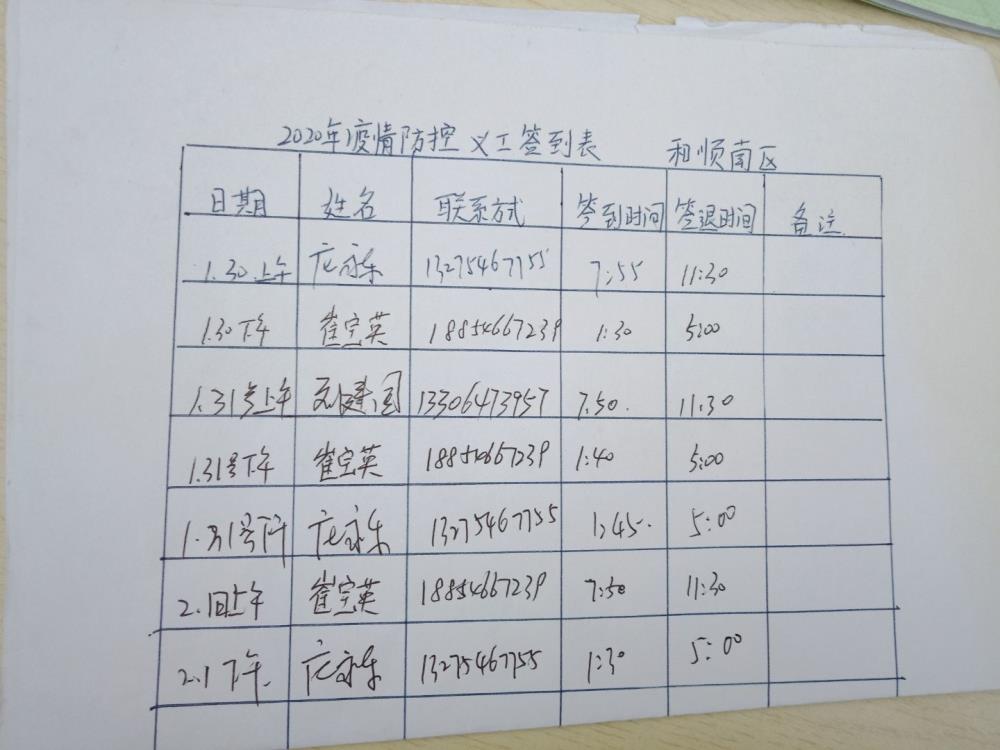 2020年疫情防控 义工签到表 和顺南区
日期 姓名 联系方式 签到时间 签退时间 备注
1.30上午 庄永东 13275467755 7:55 11:30
1.30下午 崔宝英 18854667239 1:30 5:00
1.31号上午 建国 13306473957 7:50. 11:30
1.31号下午 崔宝英 18854667239 1:40 5:00
1.31号下午 庄永东 13275467755 1:45. 5:00
2.1日上午 崔宝英 18854667239 7:50 11:30
2.1下午. 庄永东 13275467755 1:30 5:00